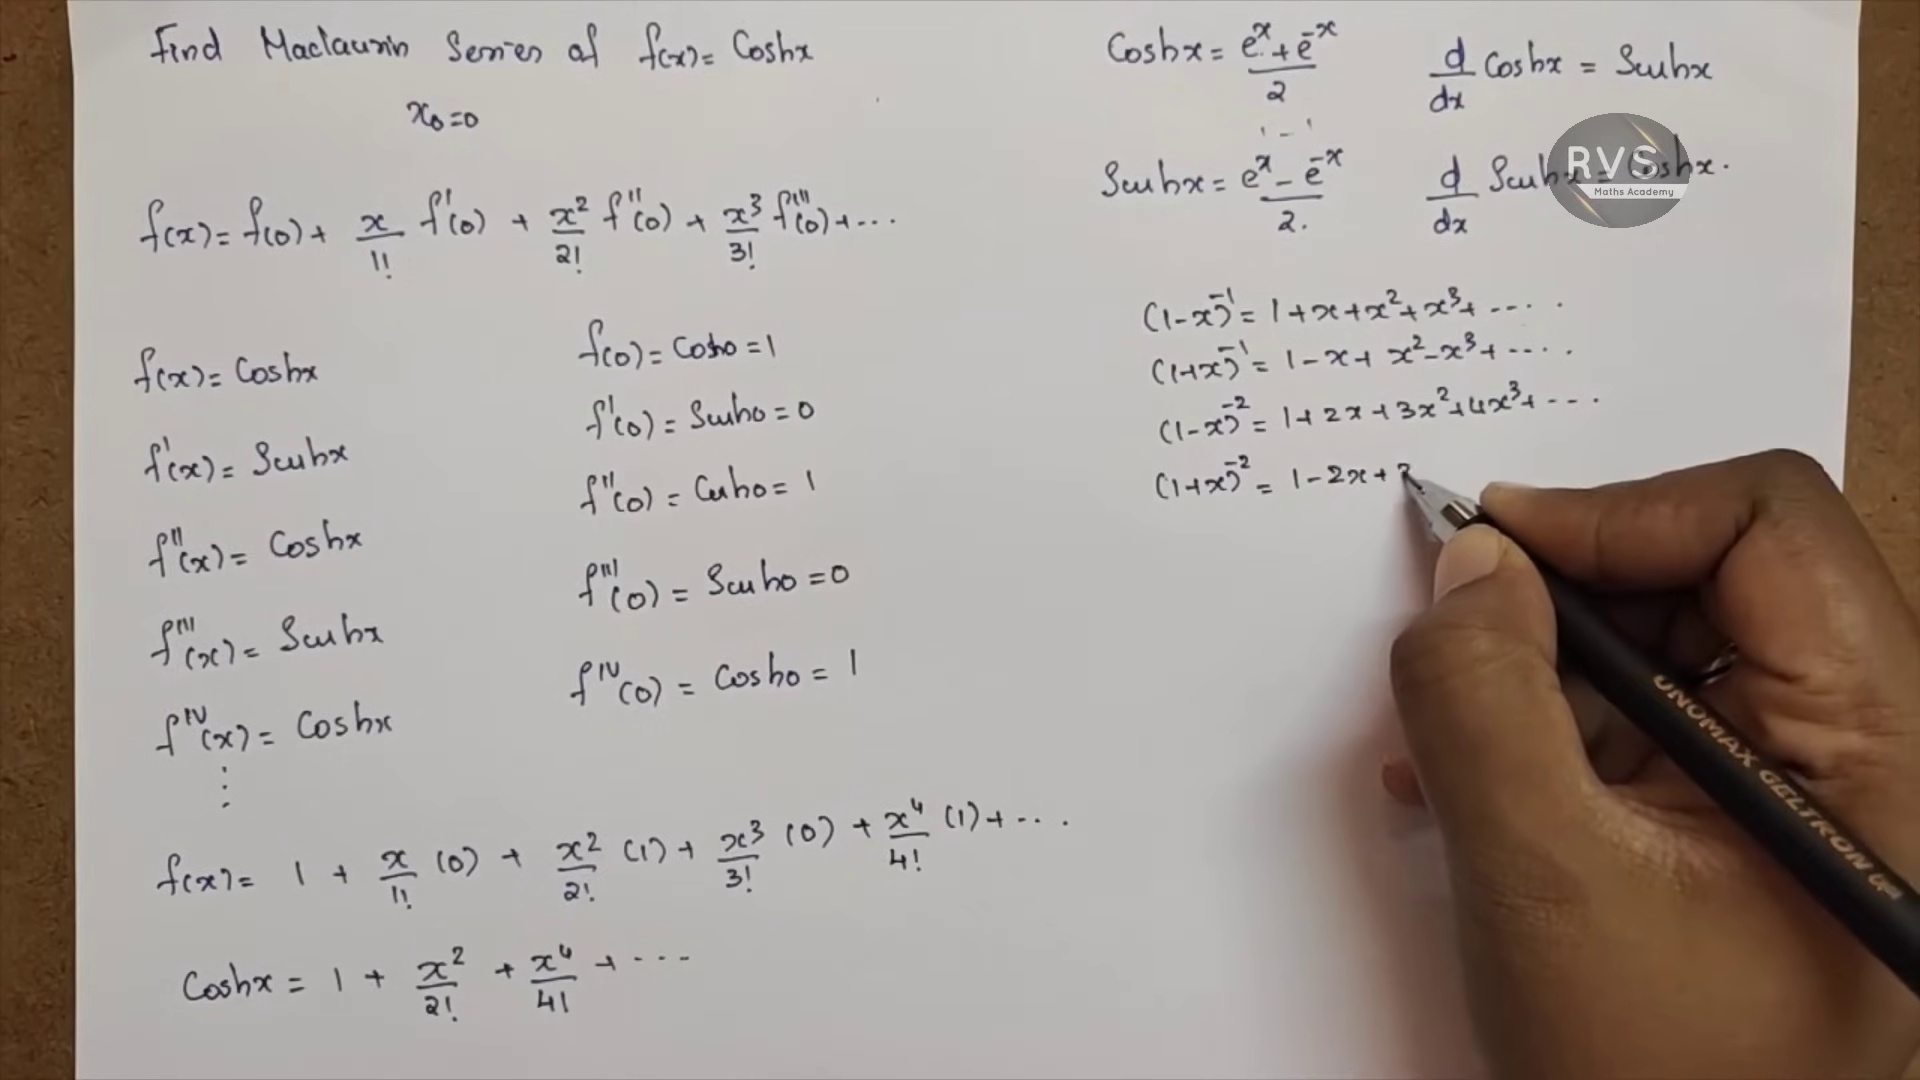 Find Maclaurin Series of f(x) = Coshx
x₀=0
f(x) = f(0) + x/1! f'(0) + x²/2! f''(0) + x³/3! f'''(0) + ...
f(x) = Coshx
f(0) = Cosh0 = 1
f'(x) = Sinhx
f'(0) = Sinh0 = 0
f''(x) = Coshx
f''(0) = Cosh0 = 1
f'''(x) = Sinhx
f'''(0) = Sinh0 = 0
f^IV(x) = Coshx
f^IV(0) = Cosh0 = 1
⋮
f(x) = 1 + x/1! (0) + x²/2! (1) + x³/3! (0) + x⁴/4! (1) + ...
Coshx = 1 + x²/2! + x⁴/4! + ...
Coshx = (eˣ + e⁻ˣ)/2
d/dx Coshx = Sinhx
Sinhx = (eˣ - e⁻ˣ)/2.
d/dx Sinhx = Coshx.
RVS
Maths Academy
(1-x)⁻¹ = 1+x+x²+x³+ ....
(1+x)⁻¹ = 1-x+x²-x³+ ....
(1-x)⁻² = 1+2x+3x²+4x³+ ....
(1+x)⁻² = 1-2x+
UNOMAX GELTRON